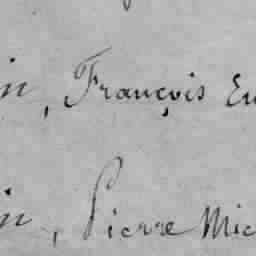 in, François Eu
in, Pierre Mic